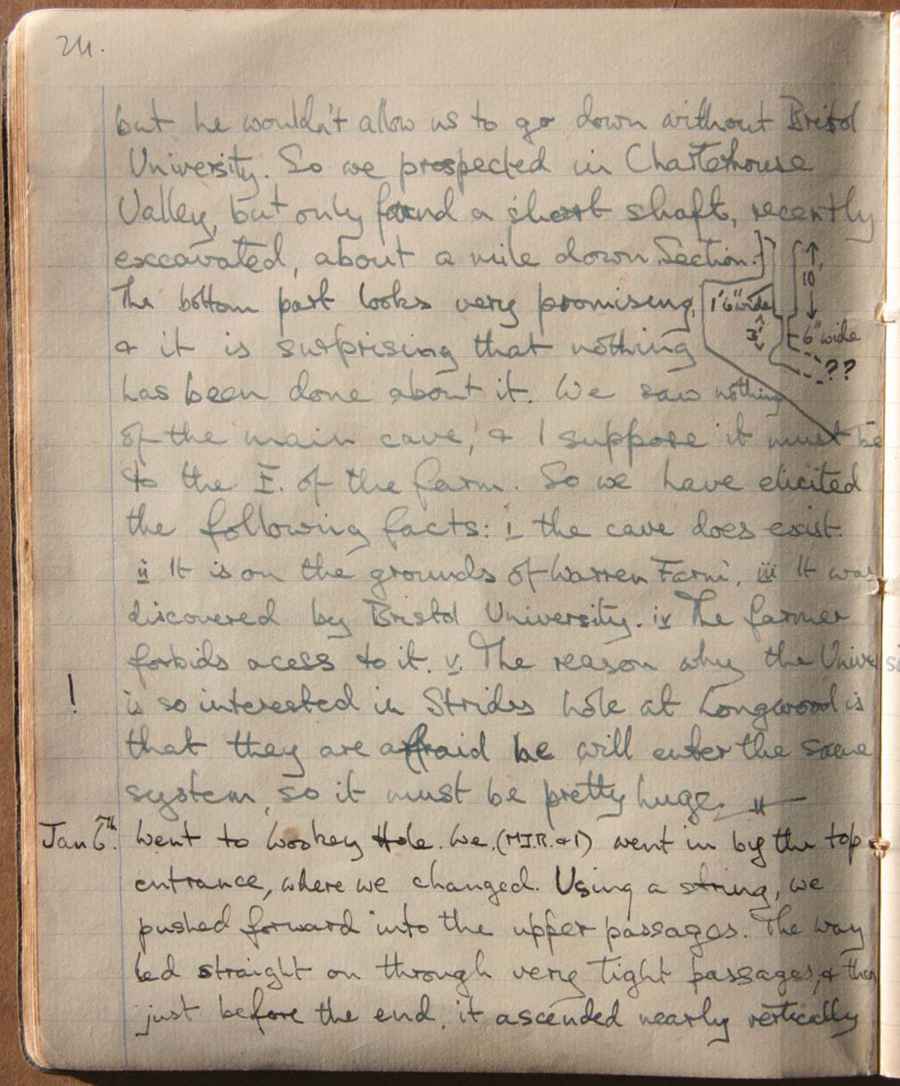 24.
but he wouldn't allow us to go down without Bristol
University. So we prospected in Charterhouse
Valley, but only found a short shaft, recently
excavated, about a mile down. Section:
The bottom part looks very promising,
& it is surprising that nothing
has been done about it. We saw nothing
of the main cave, & I suppose it must be
to the E. of the farm. So we have elicited
the following facts: i the cave does exist.
ii It is on the grounds of Warren Farm. iii It was
discovered by Bristol University. iv The farmer
forbids acess to it. v. The reason why the Univers
! is so interested in Strides hole at Longwood is
that they are afraid he will enter the same
system, so it must be pretty huge.
10
1'6" wide
3'
6" wide
??
Jan 6th. Went to Wookey Hole. We, (M.J.R. & I) went in by the top
entrance, where we changed. Using a string, we
pushed forward into the upper passages. The way
led straight on through very tight passages, & then
just before the end, it ascended nearly vertically